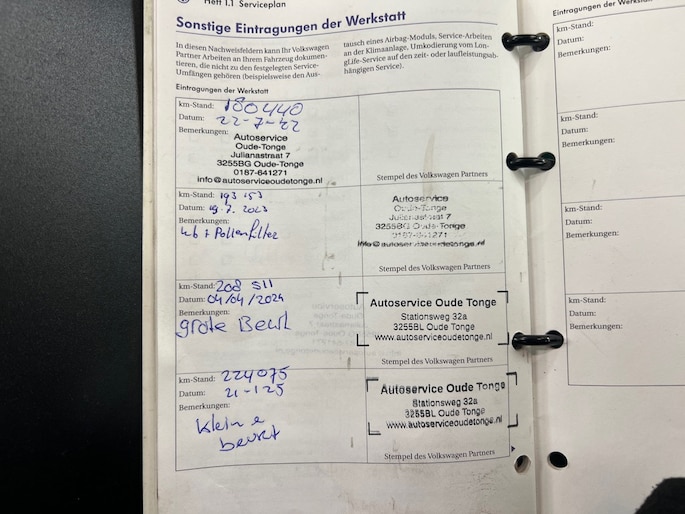 Heft 1.1 Serviceplan
Sonstige Eintragungen der Werkstatt
In diesen Nachweisfeldern kann Ihr Volkswagen
Partner Arbeiten an Ihrem Fahrzeug dokumen-
tieren, die nicht zu den festgelegten Service-
Umfängen gehören (beispielsweise den Aus-
tausch eines Airbag-Moduls, Service-Arbeiten
an der Klimaanlage, Umkodierung vom Lon-
gLife-Service auf den zeit- oder laufleistungsab-
hängigen Service).
Eintragungen der Werkstatt
km-Stand: 180440
Datum: 22-7-22
Bemerkungen:
Autoservice
Oude-Tonge
Julianastraat 7
3255BG Oude-Tonge
0187-641271
info@autoserviceoudetonge.nl
Stempel des Volkswagen Partners
km-Stand: 193 153
Datum: 19.7.2023
Bemerkungen:
+ Pollenfilter
Autoservice
Oude-Tonge
Julianastraat 7
3255BG Oude-Tonge
0187-641271
info@autoserviceoudetonge.nl
Stempel des Volkswagen Partners
km-Stand: 208 511
Datum: 04/04/2024
Bemerkungen:
grote Beurt
Autoservice Oude Tonge
Stationsweg 32a
3255BL Oude Tonge
www.autoserviceoudetonge.nl
Stempel des Volkswagen Partners
km-Stand: 224075
Datum: 21-1-25
Bemerkungen:
kleine
beurt
Autoservice Oude Tonge
Stationsweg 32a
3255BL Oude Tonge
www.autoserviceoudetonge.nl
Stempel des Volkswagen Partners
Eintragungen der
km-Stand:
Datum:
Bemerkungen:
km-Stand:
Datum:
Bemerkungen:
km-Stand:
Datum:
Bemerkungen:
km-Stand:
Datum:
Bemerkungen: